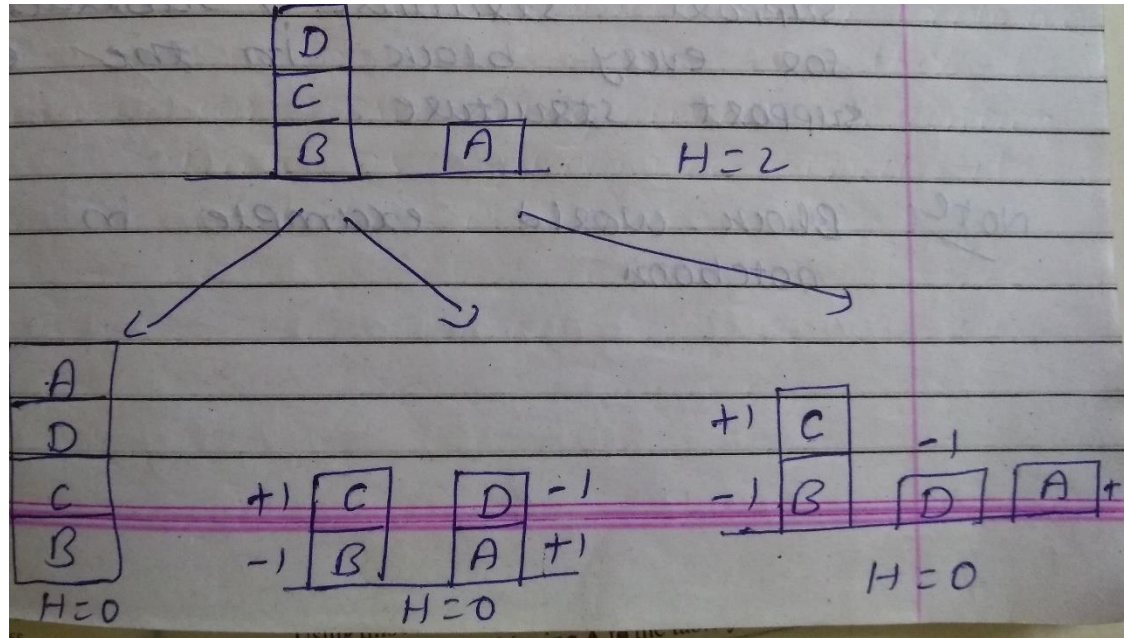 D
C
B A H=2
A
D
C
B
H=0
+1 C D -1
-1 B A +1
H=0
+1 C
-1 B
-1
D
A +
H=0